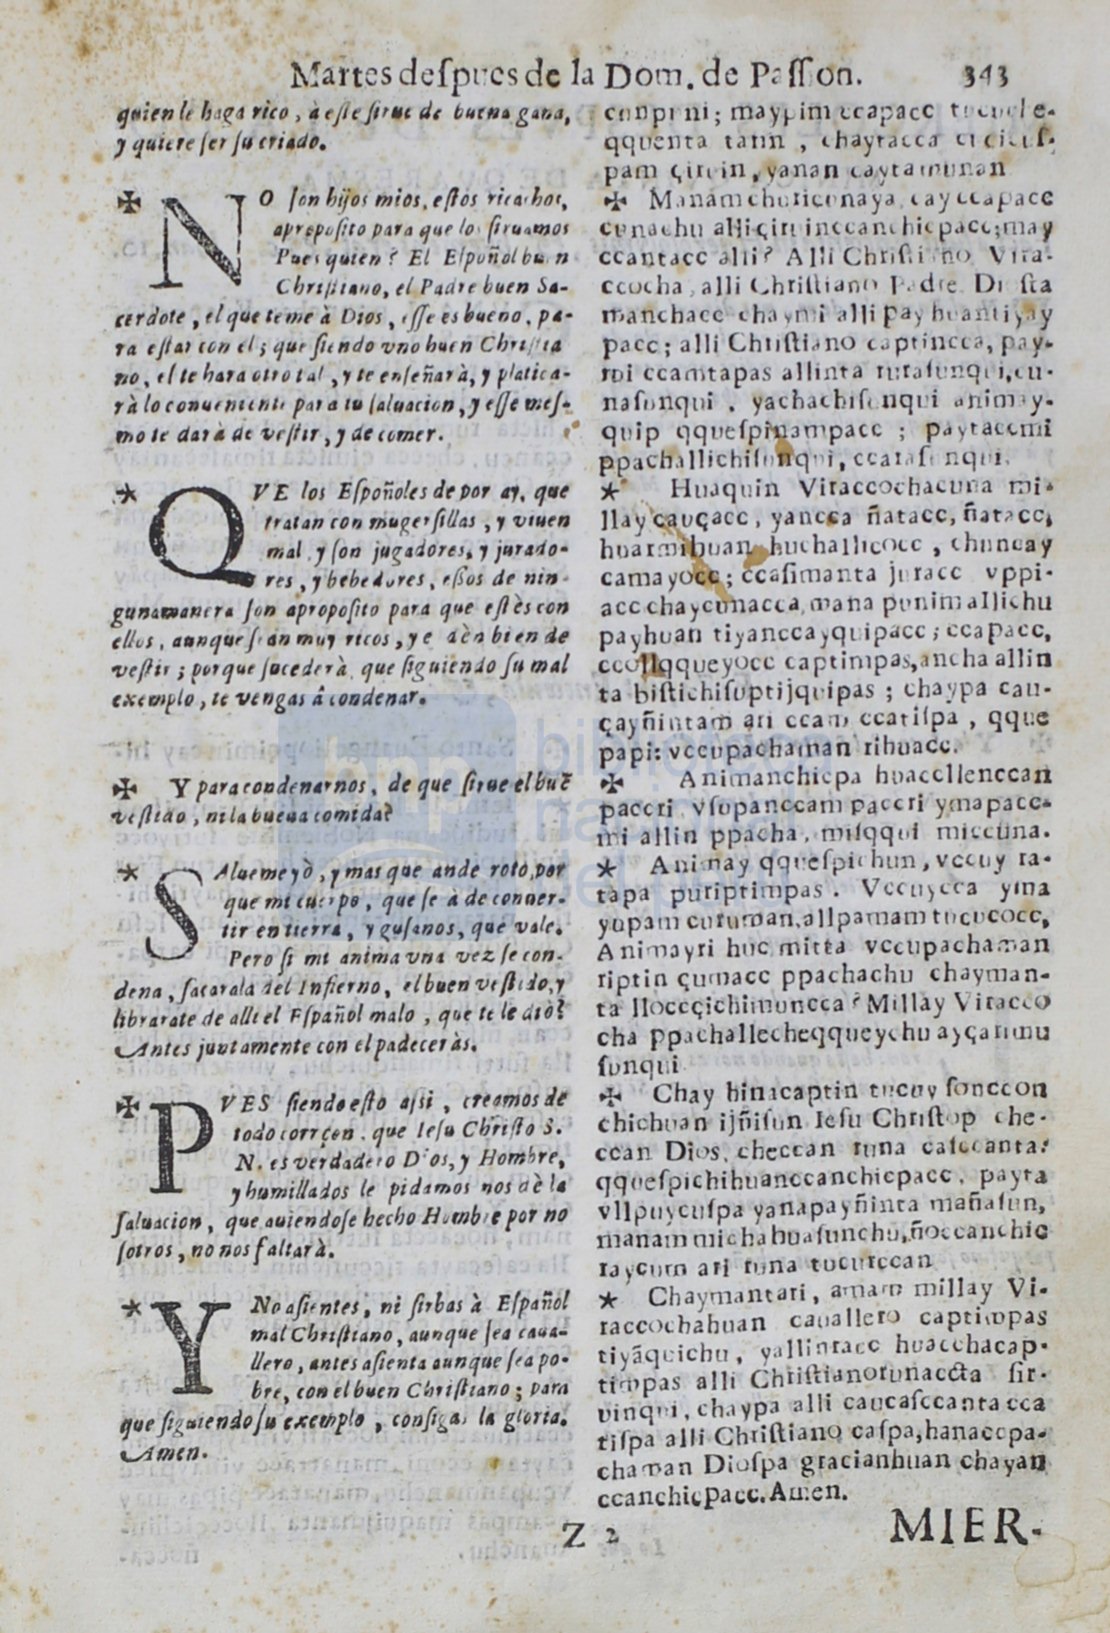 Martes deſpues de la Dom. de Paſſion. 343
quien le haga rico, à eſte ſirue de buena gana,
y quiere ſer ſu criado.
✠ NO ſon hijos mios, eſtos ricachos,
apropoſito para que los ſiruamos
Pues quien? El Eſpañol buen
Chriſtiano, el Padre buen Sa-
cerdote, el que teme à Dios, eſſe es bueno, pa-
ra eſtar con el; que ſiendo vno buen Chriſtia
no, el te hara otro tal, y te enſeñarà, y platica-
rà lo conueniente para tu ſaluacion, y eſſe meſ-
mo te darà de veſtir, y de comer.
* QVE los Eſpañoles de por ay, que
tratan con mugerſillas, y viuen
mal y ſon jugadores, y jurado-
res, y bebedores, eſſos de nin-
guna manera ſon apropoſito para que eſtès con
ellos, aunque ſean muy ricos, y te dèn bien de
veſtir; porque ſucederà que ſiguiendo ſu mal
exemplo, te vengas â condenar.
✠ Y para condenarnos, de que ſirue el buē
veſtido, ni la buena comida?
* SAlueme yò, y mas que ande roto, por
que mi cuerpo, que ſe à de conuer-
tir en tierra, y guſanos, què vale.
Pero ſi mi anima vna vez ſe con-
dena, ſacarala del Infierno, el buen veſtido, y
librarate de alli el Eſpañol malo, que te le diò?
Antes juntamente con el padeceràs.
✠ PVES ſiendo eſto aſsi, creamos de
todo corrçon, que Ieſu Chriſto S.
N. es verdadero Dios, y Hombre,
y humillados le pidamos nos dè la
ſaluacion, que auiendoſe hecho Hombre por no
ſotros, no nos faltarà.
* YNo aſientes, ni ſirbas à Eſpañol
mal Chriſtiano, aunque ſea caua-
llero, antes aſienta aunque ſea po-
bre, con el buen Chriſtiano; para
que ſiguiendo ſu exemplo, conſigas la gloria.
Amen.
cunprini; maypim ccapacc
qquenta tarin, chaytacca
pam çirin, yanan caytamunan
✠ Manam churicunaya, cay ccapacc
cunachu alli çiruinccanchicpacc; may
ccantacc alli? Alli Chriſtiano Vira-
ccocha, alli Chriſtiano Padre Dioſta
manchacc chaymi alli payhuantiyay
pacc; alli Chriſtiano captincca, pay-
mi ccamtapas allinta ruraſunqui, cu-
naſunqui, yachachiſunqui animay-
quip qqueſpinampacc; paytaccmi
ppachallichiſunqui, ccaraſunqui.
* Huaquin Viraccochacuna mi-
llay cauçacc, yancca ñatacc, ñatacc,
huarmihuan huchallicocc, chuncay
camayocc; ccaſimanta juracc vppi-
acc chaycunacca, mana punim allichu
payhuan tiyanccayquipacc; ccapacc,
ccollqqueyocc captimpas, ancha allin
ta biſtichiſuptijquipas; chaypa cau-
çayñintam ari ccam ccatiſpa, qque
papi: vccupachaman rihuacc.
✠ Animanchicpa huaccllenccan
paccri, vſupanccam paccri ymapacc-
mi allin ppacha, miſqqui miccuna.
* Animay qqueſpichun, vccuy ra-
tapa puriptimpas. Vccuycca yma
yupam curuman, allpamam tucucocc,
Animayri huc mitta vccupachaman
riptin çumacc ppachachu chayman-
ta lloccçichimuncca? Millay Viracco
cha ppachallecheqqueychu ayçarimu
ſunqui
✠ Chay hinacaptin tucuy ſonccon
chichuan ijñiſun Ieſu Chriſtop che-
ccan Dios, checcan runa caſccanta:
qqueſpichihuanccanchicpacc, payta
vllpuycuſpa yanapayñinta mañaſun,
manam michahuaſunchu, ñoccanchic
raycum ari runa tucurccan
* Chaymantari, amam millay Vi-
raccochahuan cauallero captimpas
tiyãquichu, yallinracc huacchacap-
timpas alli Chriſtianorunaccta ſir-
uinqui, chaypa alli caucaſccanta cca
tiſpa alli Chriſtiano caſpa, hanaccpa-
chaman Dioſpa gracianhuan chayan
ccanchicpacc. Amen.
Z 2
MIER-